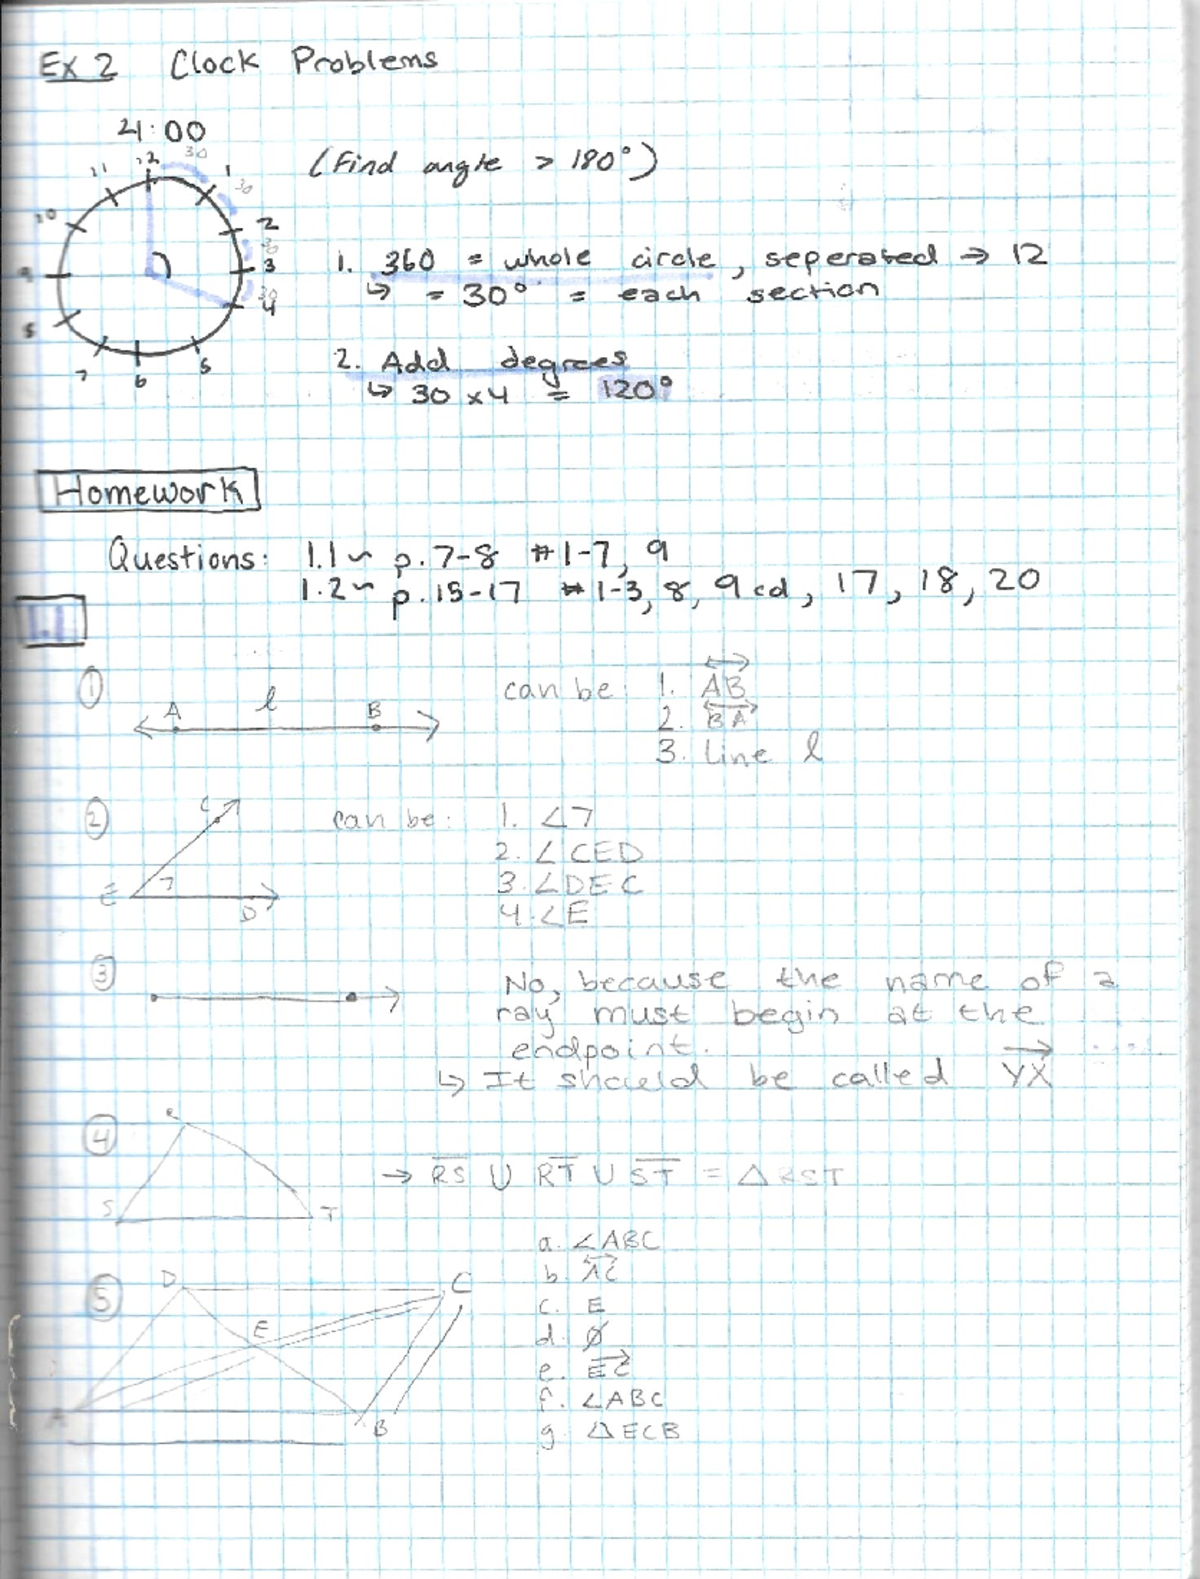 Ex 2 Clock Problems
4:00
(Find angle > 180°)
12 30 1 30 2 30 3 30 4 5 6 7 8 9 10 11
1. 360 = whole circle, seperated → 12
↳ = 30° = each section
2. Add degrees
↳ 30 x 4 = 120°
Homework
Questions: 1.1 ~ p. 7-8 # 1-7, 9
1.2 ~ p. 15-17 # 1-3, 8, 9 cd, 17, 18, 20
1.1
① A l B can be: 1. AB
2. BA
3. Line l
② C E 7 D can be: 1. ∠7
2. ∠CED
3. ∠DEC
4. ∠E
③ No, because the name of a
ray must begin at the
endpoint.
↳ It should be called YX
④ R S T → RS U RT U ST = △RST
⑤ D C E A B
a. ∠ABC
b. AC
c. E
d. ∅
e. EC
f. ∠ABC
g. △ECB